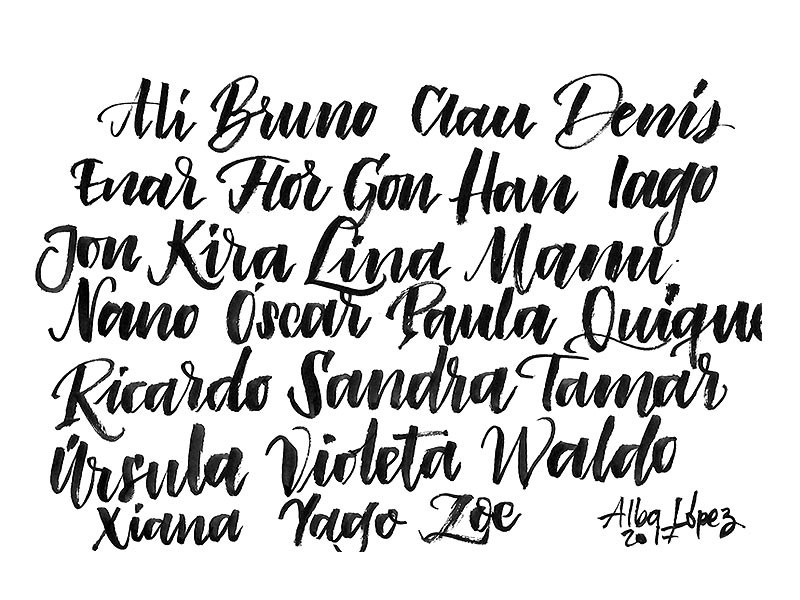 Ali Bruno Clau Denís
Enar Flor Gon Han Iago
Jon Kira Lina Manu
Nano Óscar Paula Quique
Ricardo Sandra Tamar
Úrsula Violeta Waldo
Xiana Yago Zoe
Alba López
2017